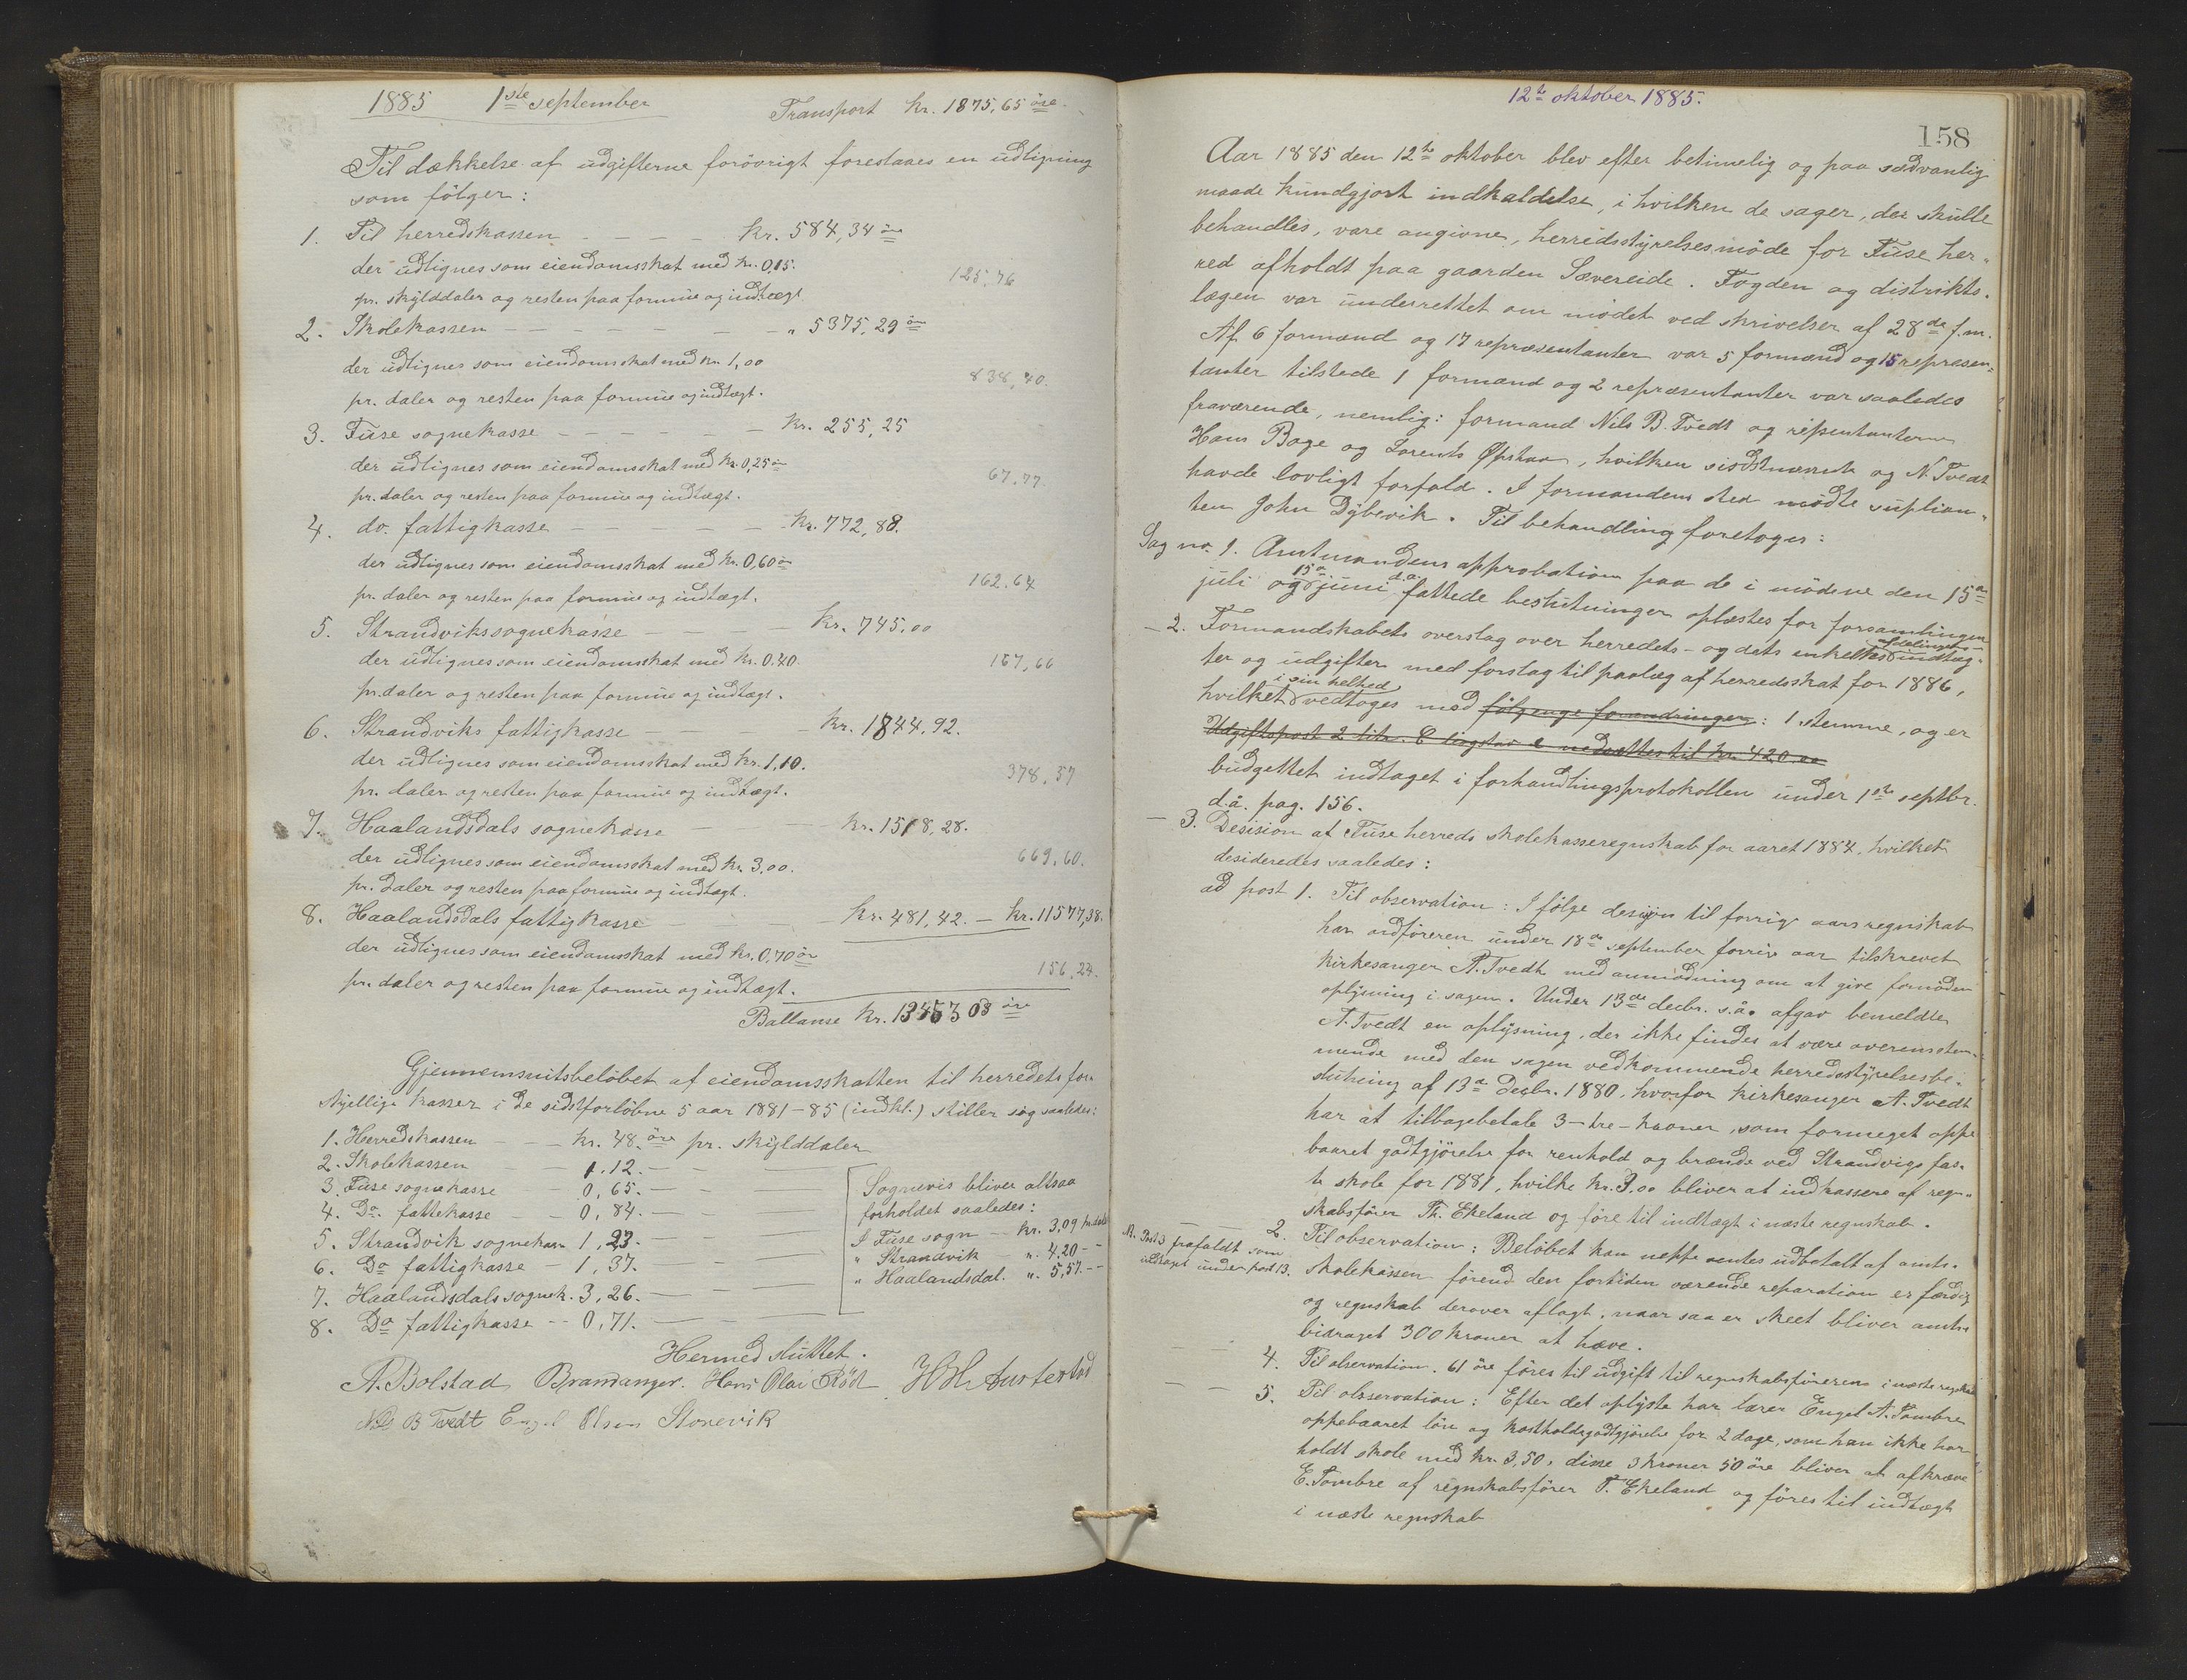 1885 1ste september
Transport Kr. 1875,65 öre
Til dækkelse af udgifterne forövrigt forestaaes en udligning
som fölger:
1. Til herredskassen — — — — Kr. 584,34 öre
der udlignes som eiendomsskat med kr. 0,15.
pr. skylddaler og resten paa formue og indtægt 125,76
2. Skolekassen — — — — — — „ 5375,29 öre
der udlignes som eiendomsskat med kr. 1,00
pr. daler og resten paa formue og indtægt. 838,40.
3. Fuse sognekasse — — — — — Kr. 255,25
der udlignes som eiendomsskat med kr. 0,25 öre
pr. daler og resten paa formue og indtægt. 67.77
4. do. fattigkasse — — — — Kr. 772,88.
der udlignes som eiendomsskat med kr. 0,60 öre
pr. daler og resten paa formue og indtægt. 162.64
5. Strandviks sognekasse — — — Kr. 745,00
der udlignes som eiendomsskat med kr. 0.40.
pr. daler og resten paa formue og indtægt. 137,66
6. Strandviks fattigkasse — — — Kr. 1844,92.
der udlignes som eiendomsskat med kr. 1,10.
pr. daler og resten paa formue og indtægt. 378,57
7. Haalandsdals sognekasse — — Kr. 1518,28.
der udlignes som eiendomsskat med kr. 3,00.
pr. daler og resten paa formue og indtægt. 669,60.
8. Haalandsdals fattigkasse — — Kr. 481,42. — Kr. 11577,38.
der udlignes som eiendomsskat med kr. 0,70 öre
pr. daler og resten paa formue og indtægt. 156,24.
Ballanse Kr. 13453 03 öre
Gjennemsnitsbelöbet af eiendomsskatten til herredets for-
skjellige kasser i de sidstforløbne 5 aar 1881-85 (indkl.) stiller sig saaledes:
1. Herredskassen — — kr. 48. öre pr. skylddaler
2. Skolekassen — — 1,12. — — —
3. Fuse sognekasse — 0,65. — — —
4. Do. fattekasse — — 0,84. — — —
5. Strandvik sognekasse 1,23. — — —
6. Do fattigkasse — 1,37. — — —
7. Haalandsdals sognek. 3,26. — — —
8. Do fattigkasse — 0,71. — —
Sognevis bliver altsaa
forholdet saaledes:
I Fuse sogn — kr. 3,09 pr. daler
„ Strandvik — „ 4,20 — —
„ Haalandsdal. „ 5,57. — —
Hermed sluttet.
A. Bolstad Brandanger. Hans Olai Röd H H Austestad
Nils B Tvedt Engel Olsen Storevik
12te oktober 1885.
158
Aar 1885 den 12te oktober blev efter betimelig og paa sædvanlig
maade kundgjort indkaldelse, i hvilken de sager, der skulle
behandles, vare angivne, herredsstyrelsesmöde for Fuse her-
red afholdt paa gaarden Sævereide. Fogden og distrikts-
lægen var underrettet om mödet ved skrivelser af 28de f.m.
Af 6 formænd og 17 repræsentanter var 5 formænd og 15 repræsen-
tanter tilstede 1 formand og 2 repræsentanter var saaledes
fraværende, nemlig: formand Nils B. Tvedt og repsentanterne
Hans Bage og Lorents Øpstaa, hvilken sidstnævnte og N. Tvedt
havde lovligt forfald. I formandens sted mödte suplian-
ten John Dybevik. Til behandling foretoges:
Sag no. 1. Amtmandens approbation paa de i möderne den 15de
juli og 15de juni d.a. fattede beslutninger oplæstes for forsamlingen
— 2. Formandskabets overslag over herredets- og dets enkelte afdelingers indtæg-
ter og udgifter med forslag til paalæg af herredsskat for 1886,
hvilket i sin helhed vedtoges mod fölgenge forandringer: 1 stemme, og er
Udgiftspost 2 litr. C bogstav e nedsættes til kr. 420,00
budgettet indtaget i forhandlingsprotokollen under 1ste septbr.
d.å. pag. 156.
— 3. Desision af Fuse herreds skolekasseregnskab for aaret 1884, hvilket
desideredes saaledes:
ad post 1. Til observation: I fölge desision til forrige aars regnskab
har ordföreren under 18de september forrige aar tilskrevet
kirkesanger A. Tvedt med anmodning om at give fornöden
oplysning i sagen. Under 13de decbr. s.å. afgav bemeldte
A. Tvedt en oplysning, der ikke findes at være overensstem-
mende med den sagen vedkommende herredsstyrelsesbe-
slutning af 13de decbr. 1880, hvorfor kirkesanger A. Tvedt
har at tilbagebetale 3 - tre - kroner, som formeget oppe
baaret godtgjörelse for renhold og brænde ved Strandvigs fas-
te skole for 1881, hvilke kr. 3,00 bliver at indkassere af regn-
skabsförer Th. Ekeland og före til indtægt i næste regnskab.
— — 2. Til observation: Belöbet kan neppe ventes udbetalt af amts-
N. Post 3 frafaldt som
skolekassen förend den fortiden værende reparation er færdig
under post 13.
og regnskab derover aflagt, naar saa er skeet bliver amts-
bidraget 300 kroner at hæve.
— — 4. Til observation. 61 öre föres til udgift til regnskabsföreren i næste regnskab
— — 5. Til observation: Efter det oplyste har lærer Engel A. Tombre
oppebaaret lön og kostholdsgodtgjörelse for 2 dage, som han ikke har
holdt skole med kr. 3,50, disse 3 kroner 50 öre bliver at afkræve
E. Tombre af regnskabsförer T. Ekeland og föres til indtægt
i næste regnskab